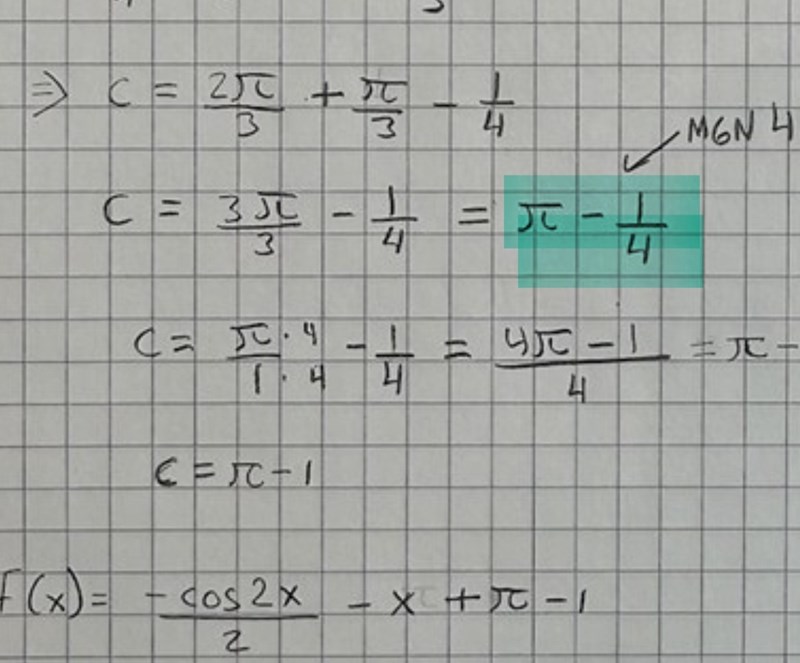 ⇒ C = 2π/3 + π/3 - 1/4
MGN 4
C = 3π/3 - 1/4 = π - 1/4
C = π·4/1·4 - 1/4 = 4π-1/4 = π -
C = π - 1
f(x) = -cos2x/2 - x + π - 1